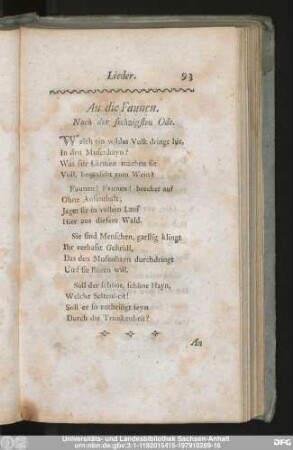 Lieder. 93
An die Faunen.
Nach der sechzigsten Ode.
Welch ein wildes Volk dringt hie,
In den Musenhayn?
Was für Lärmen machen sie
Voll, begeistert vom Wein?
Faunen! Faunen! brechet auf
Ohne Aufenthalt;
Jaget sie in vollem Lauf
Hier aus diesem Wald.
Sie sind Menschen, garstig klingt
Ihr verhaßt Gebrüll,
Das den Musenhayn durchdringt
Und sie stören will.
Soll der schöne, schöne Hayn,
Welche
Soll er so entheiligt seyn
Durch die Trunkenheit?
An
Universitäts- und Landesbibliothek Sachsen-Anhalt
urn:nbn:de:gbv:3:1-1192015415-197910269-16
DFG